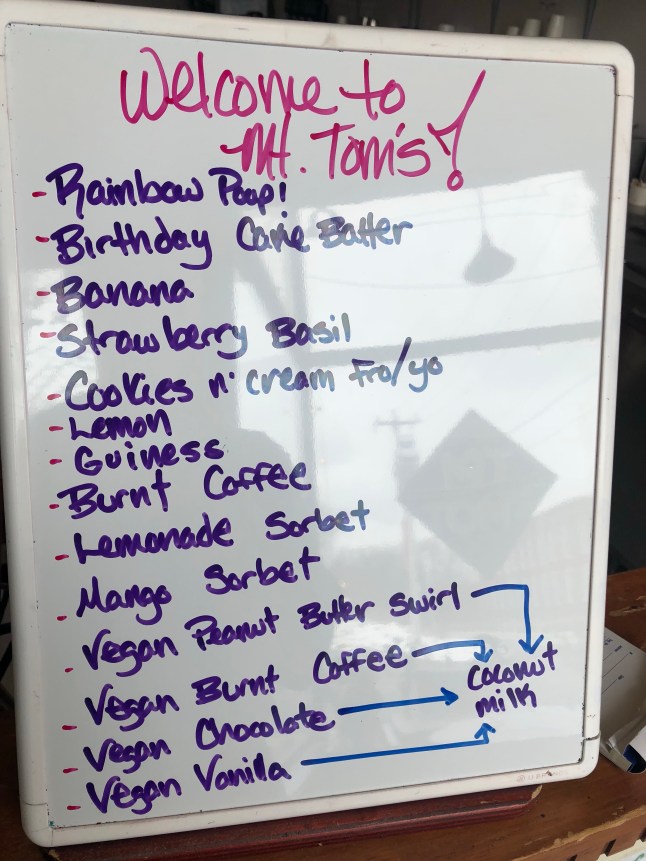 Welcome to
Mt. Tom's!
- Rainbow Poop!
- Birthday Cake Batter
- Banana
- Strawberry Basil
- Cookies n' cream fro/yo
- Lemon
- Guiness
- Burnt Coffee
- Lemonade Sorbet
- Mango Sorbet
- Vegan Peanut Butter Swirl
- Vegan Burnt Coffee
- Vegan Chocolate
- Vegan Vanilla
coconut
milk